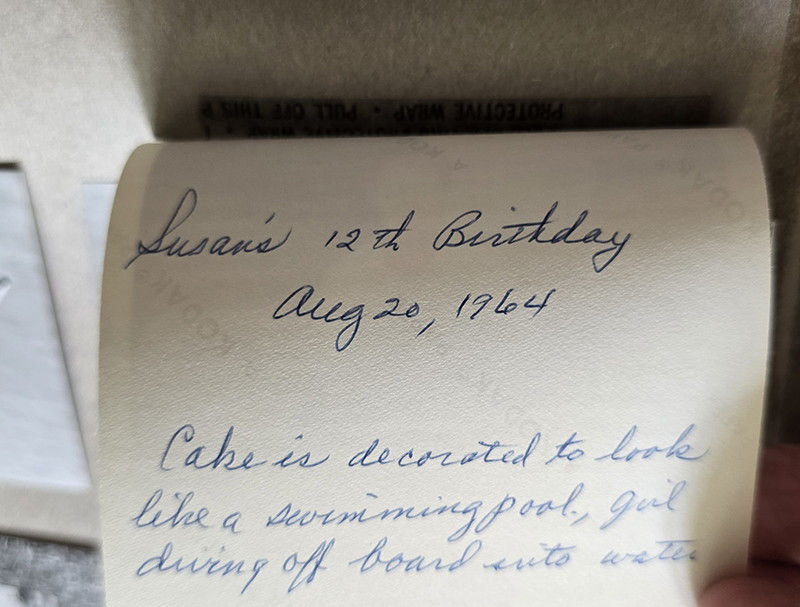 PROTECTIVE WRAP • PULL OFF THIS P
PROTECTIVE WRAP
A KODAK
KODAK
Susan's 12th Birthday
Aug 20, 1964
KODAK
Cake is decorated to look
like a swimming pool, girl
diving off board into water